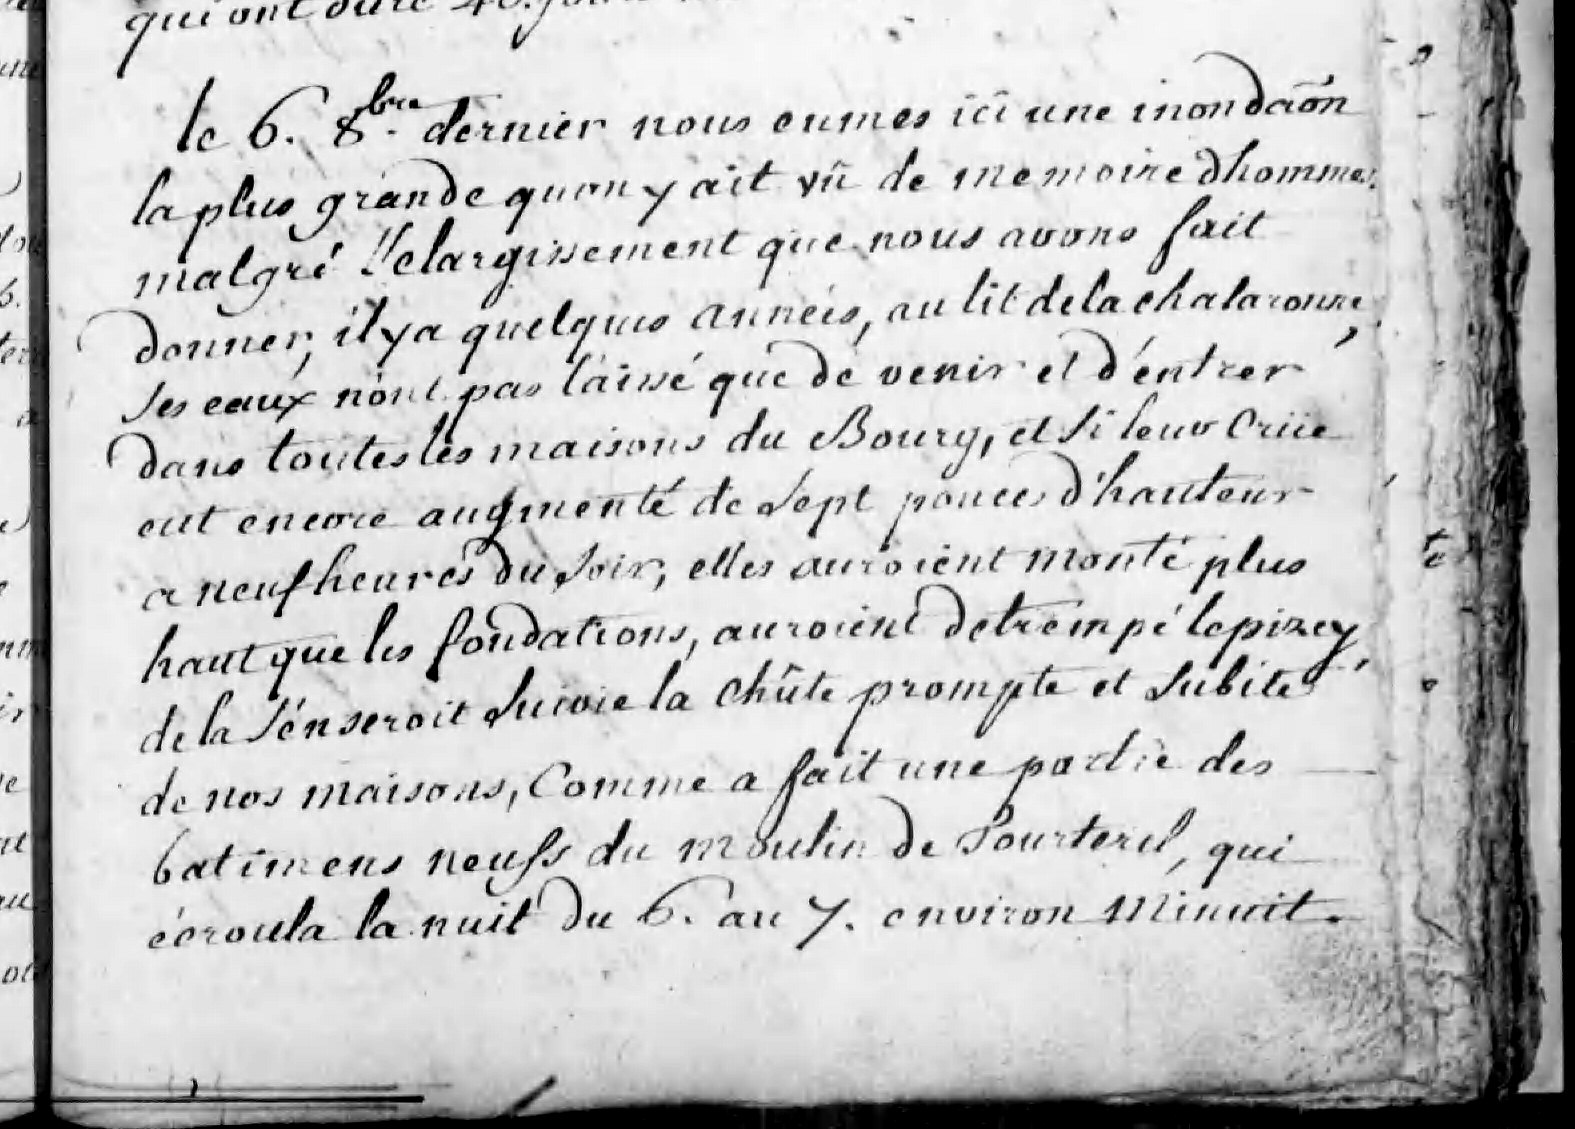 qui ont duré 40. jours
le 6. 8.bre dernier nous eumes ici une inondaôn
la plus grande quon y ait vû de memoire dhommes.
malgré l'elargissement que nous avons fait
donner, il y a quelques années, au lit de la chalaronne,
ses eaux n'ont pas laissé que de venir et d'entrer
dans toutes les maisons du Bourg, et si leur Crüe
eut encore augmenté de sept pouces d'hauteur
a neuf heures du soir, elles auroient monté plus
haut que les fondations, auroient detrempé le pizey,
de la s'en seroit suivie la chûte prompte et subite
de nos maisons, Comme a fait une partie des
batimens neufs du moulin de, qui
écroula la nuit du 6. au 7. environ minuit.